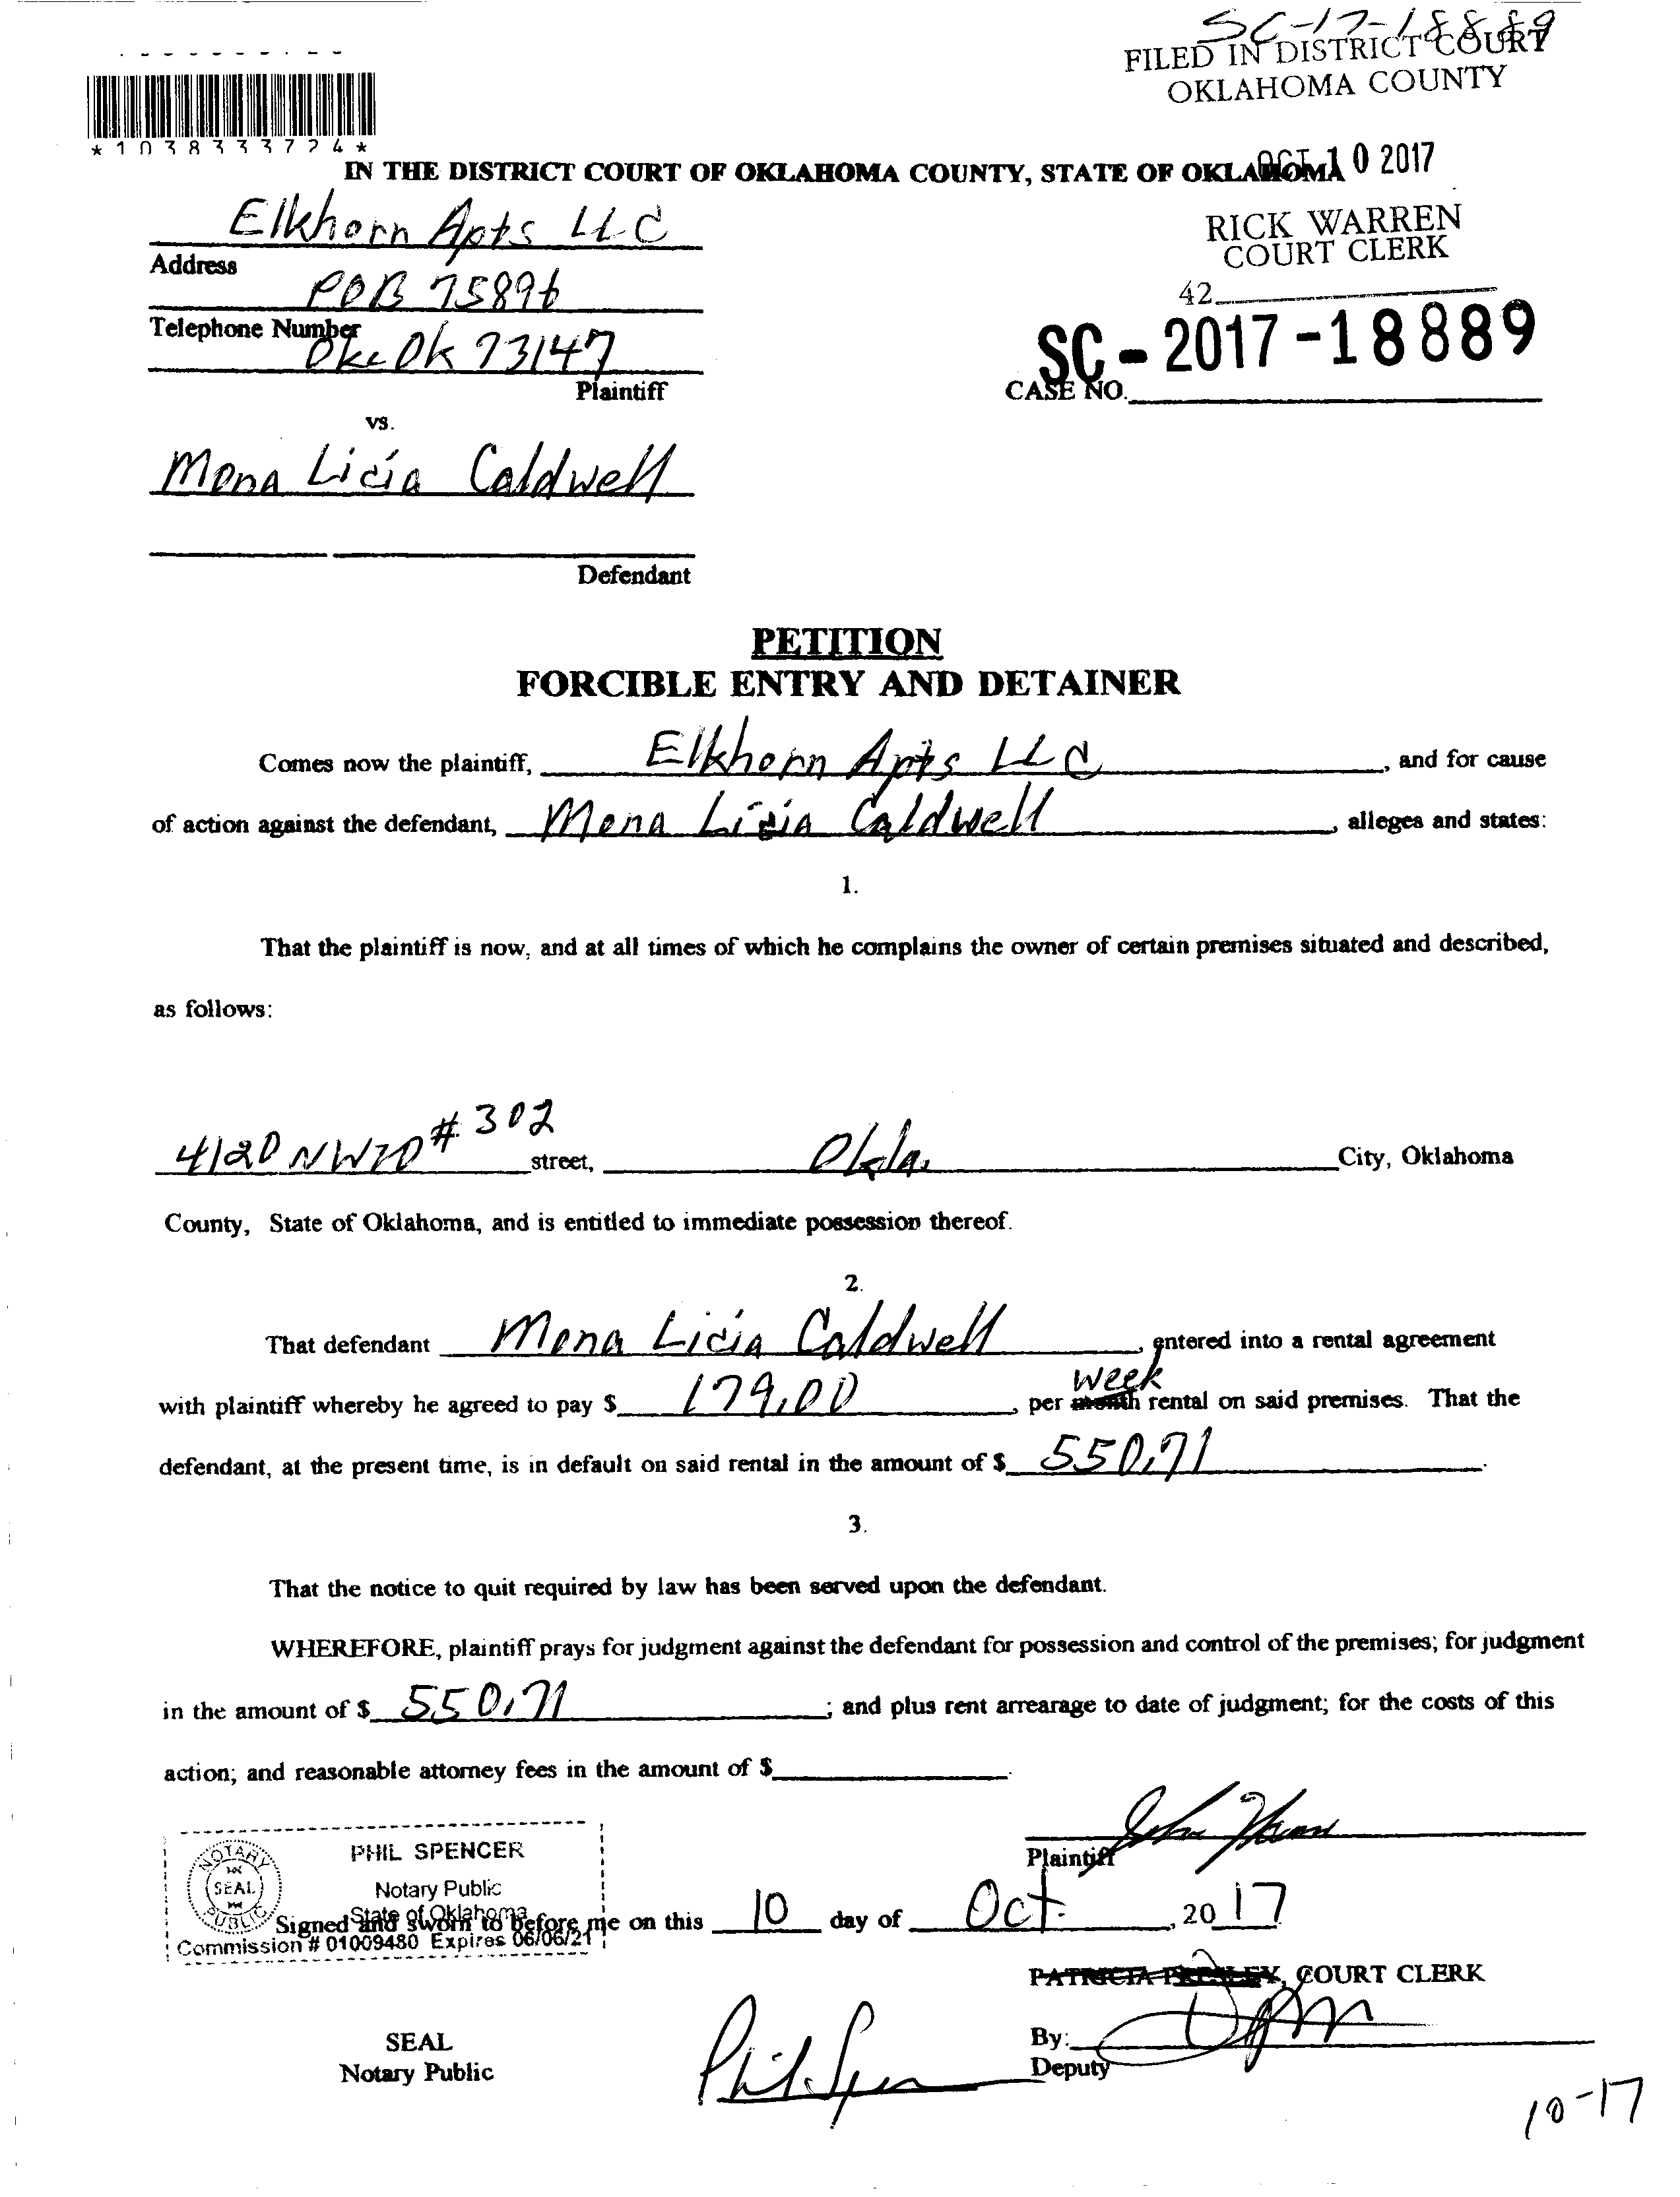 SC-17-18889
FILED IN DISTRICT COURT
OKLAHOMA COUNTY
*1038333724*
IN THE DISTRICT COURT OF OKLAHOMA COUNTY, STATE OF OKLAHOMA
OCT 10 2017
Elkhorn Apts LLC
RICK WARREN
COURT CLERK
Address
POB 75896
42
Telephone Number
Okc Ok 73147
SC-2017-18889
Plaintiff
CASE NO.
vs.
Mona Licia Caldwell
Defendant
PETITION
FORCIBLE ENTRY AND DETAINER
Comes now the plaintiff, Elkhorn Apts LLC, and for cause
of action against the defendant, Mona Licia Caldwell, alleges and states:
1.
That the plaintiff is now, and at all times of which he complains the owner of certain premises situated and described,
as follows:
4120 NW10 # 302 street, Okla. City, Oklahoma
County, State of Oklahoma, and is entitled to immediate possession thereof.
2.
That defendant Mona Licia Caldwell, entered into a rental agreement
week
with plaintiff whereby he agreed to pay $ 179.00, per month rental on said premises. That the
defendant, at the present time, is in default on said rental in the amount of $ 550.71.
3.
That the notice to quit required by law has been served upon the defendant.
WHEREFORE, plaintiff prays for judgment against the defendant for possession and control of the premises; for judgment
in the amount of $ 550.71; and plus rent arrearage to date of judgment; for the costs of this
action; and reasonable attorney fees in the amount of $
PHIL SPENCER
Plaintiff
NOTARY PUBLIC
SEAL
Notary Public
State of Oklahoma
Signed and sworn to before me on this 10 day of Oct, 2017
Commission # 01009480 Expires 06/06/21
PATRICIA PRESLEY, COURT CLERK
SEAL
By:
Notary Public
Phil Spencer
Deputy
10-17